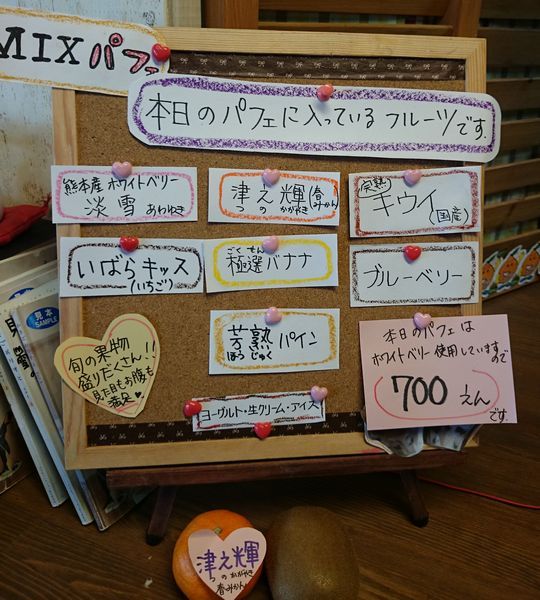 MIXパフェ
本日のパフェに入っているフルーツです.
熊本産 ホワイトベリー
淡雪 あわゆき
津之輝(春みかん)
つのかがやき
完熟
キウイ
(国産)
いばらキッス
(いちご)
ごくせん
極選バナナ
ブルーベリー
芳熟パイン
ほうじゅく
旬の果物
盛りだくさん!!
見た目もお腹も
満足♥
本日のパフェは
ホワイトベリー使用していますので
700えん
です.
ヨーグルト・生クリーム・アイス
見本
SAMPLE
津之輝
つのかがやき
春みかん